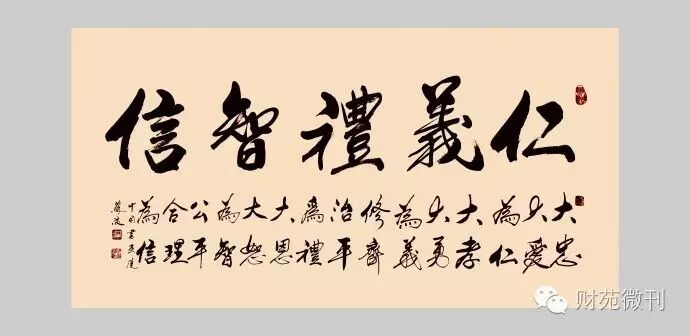 仁義禮智信
大忠
大愛
為仁
大孝
大勇
為義
修齊
治平
為禮
大恩
大恕
為智
公平
合理
為信
财苑微刊